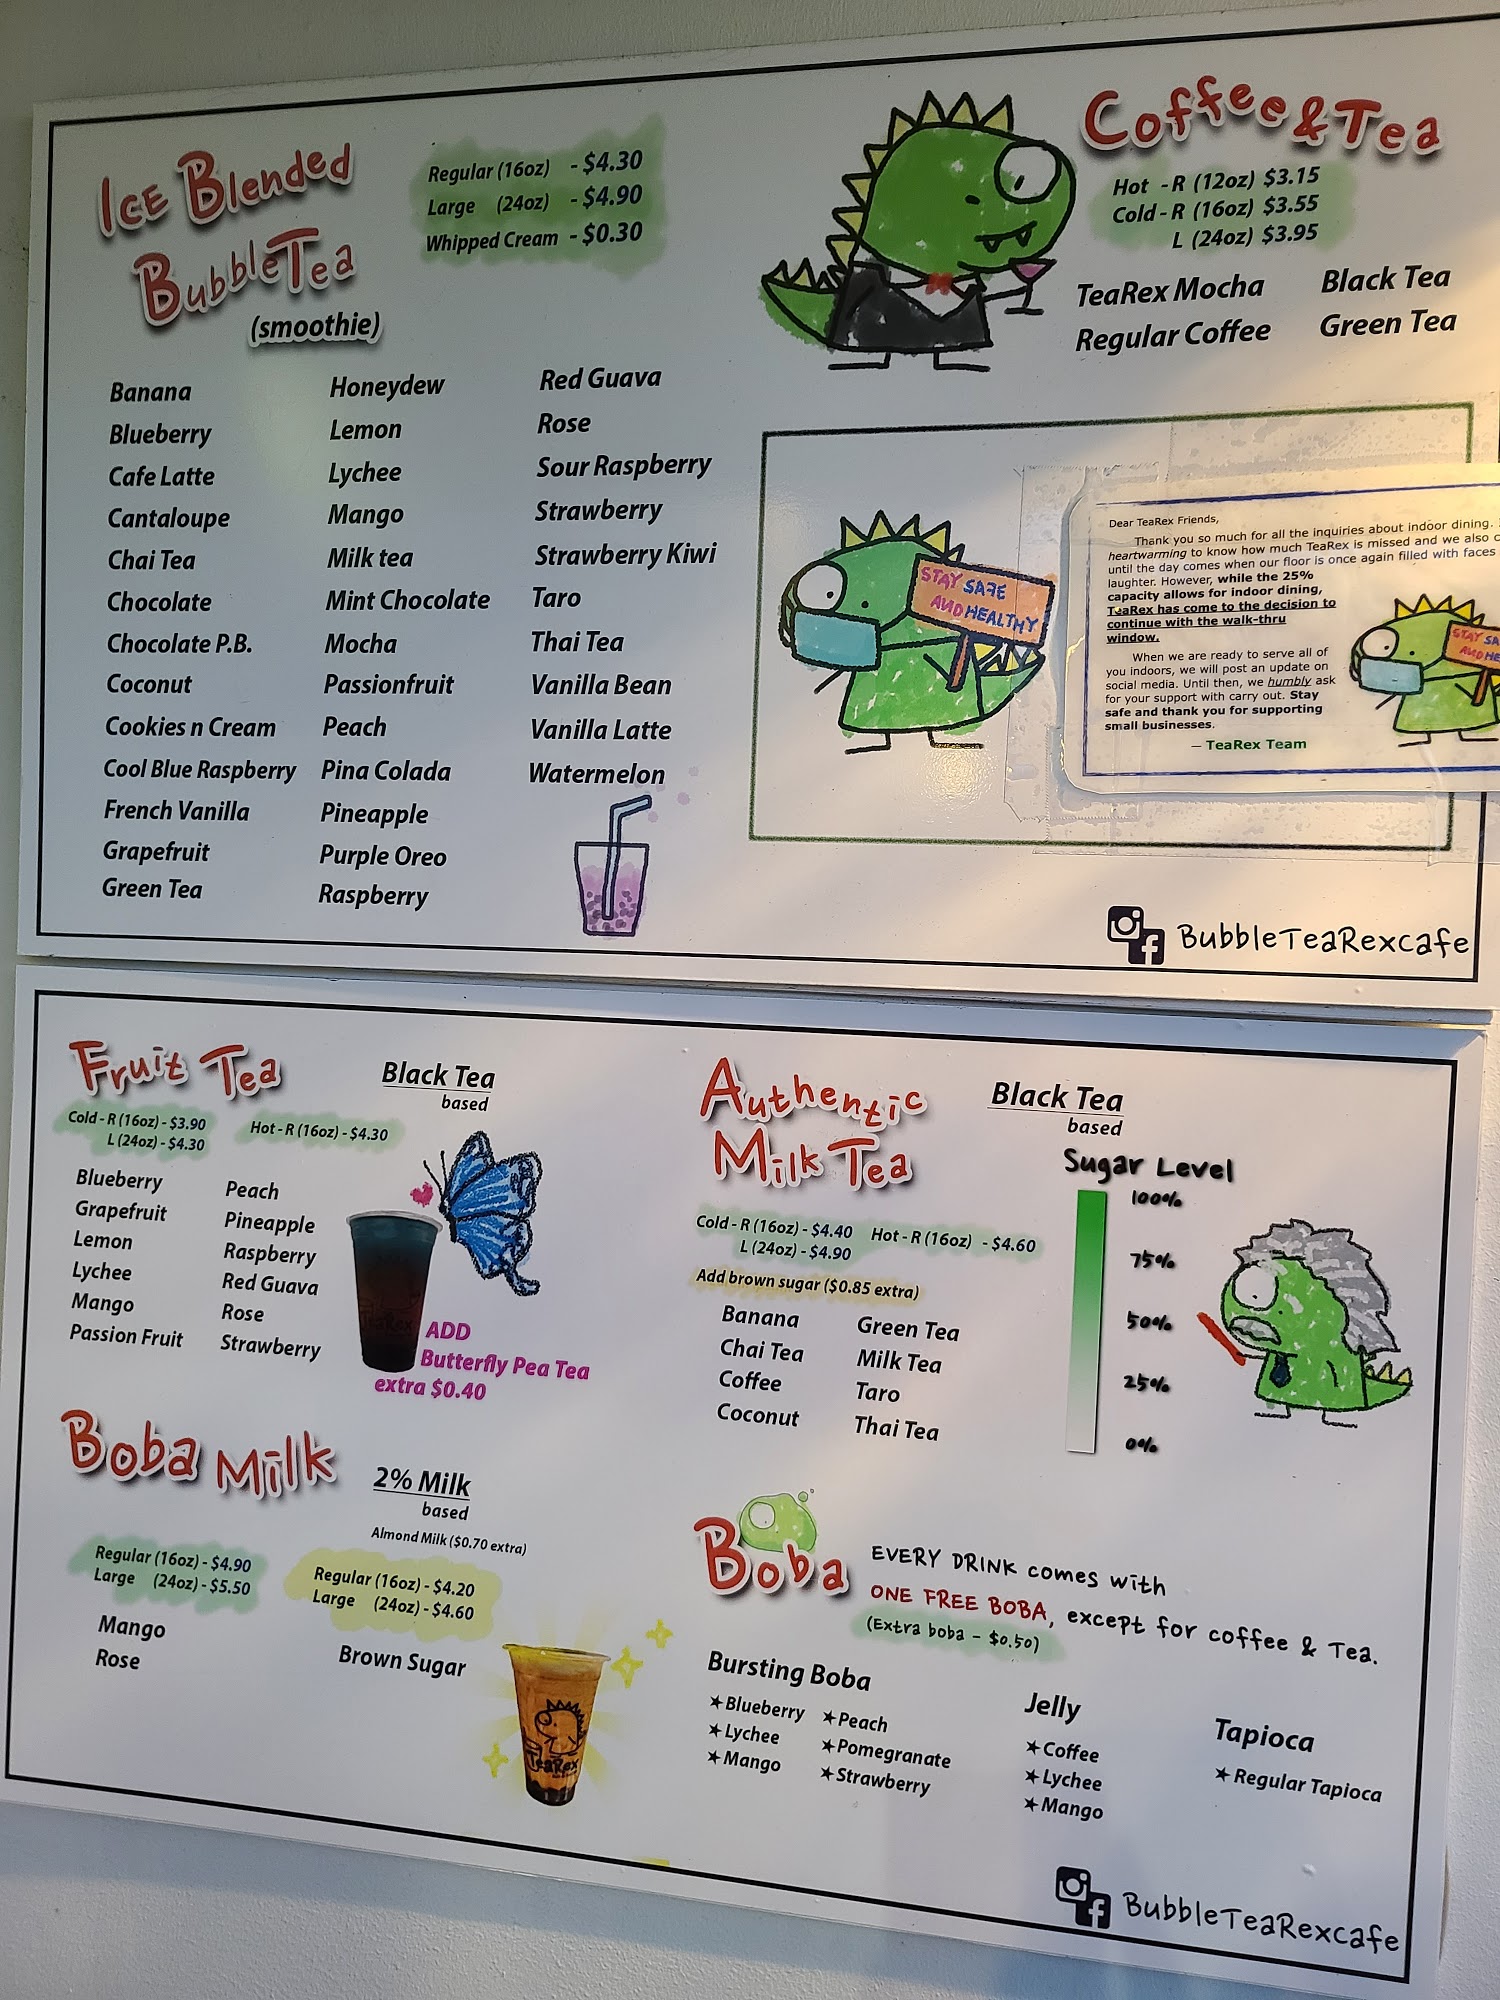 Ice Blended
BubbleTea
(smoothie)
Regular (16oz) - $4.30
Large (24oz) - $4.90
Whipped Cream - $0.30
Banana
Blueberry
Cafe Latte
Cantaloupe
Chai Tea
Chocolate
Chocolate P.B.
Coconut
Cookies n Cream
Cool Blue Raspberry
French Vanilla
Grapefruit
Green Tea
Honeydew
Lemon
Lychee
Mango
Milk tea
Mint Chocolate
Mocha
Passionfruit
Peach
Pina Colada
Pineapple
Purple Oreo
Raspberry
Red Guava
Rose
Sour Raspberry
Strawberry
Strawberry Kiwi
Taro
Thai Tea
Vanilla Bean
Vanilla Latte
Watermelon
Coffee & Tea
Hot - R (12oz) $3.15
Cold - R (16oz) $3.55
L (24oz) $3.95
TeaRex Mocha
Regular Coffee
Black Tea
Green Tea
STAY SAFE
AND HEALTHY
Dear TeaRex Friends,
Thank you so much for all the inquiries about indoor dining.
heartwarming to know how much TeaRex is missed and we also
until the day comes when our floor is once again filled with faces
laughter. However, while the 25%
capacity allows for indoor dining,
TeaRex has come to the decision to
continue with the walk-thru
window.
When we are ready to serve all of
you indoors, we will post an update on
social media. Until then, we humbly ask
for your support with carry out. Stay
safe and thank you for supporting
small businesses.
— TeaRex Team
STAY SA
AND HE
BubbleTeaRexcafe
Fruit Tea
Black Tea
based
Cold - R (16oz) - $3.90
L (24oz) - $4.30
Hot - R (16oz) - $4.30
Blueberry
Grapefruit
Lemon
Lychee
Mango
Passion Fruit
Peach
Pineapple
Raspberry
Red Guava
Rose
Strawberry
TeaRex
ADD
Butterfly Pea Tea
extra $0.40
Authentic
Milk Tea
Black Tea
based
Cold - R (16oz) - $4.40 Hot - R (16oz) - $4.60
L (24oz) - $4.90
Add brown sugar ($0.85 extra)
Banana
Chai Tea
Coffee
Coconut
Green Tea
Milk Tea
Taro
Thai Tea
Sugar Level
100%
75%
50%
25%
0%
Boba Milk
2% Milk
based
Almond Milk ($0.70 extra)
Regular (16oz) - $4.90
Large (24oz) - $5.50
Mango
Rose
Regular (16oz) - $4.20
Large (24oz) - $4.60
Brown Sugar
TeaRex
Boba
EVERY DRINK comes with
ONE FREE BOBA, except for coffee & Tea.
(Extra boba - $0.50)
Bursting Boba
★Blueberry
★Lychee
★Mango
★Peach
★Pomegranate
★Strawberry
Jelly
★Coffee
★Lychee
★Mango
Tapioca
★Regular Tapioca
BubbleTeaRexcafe